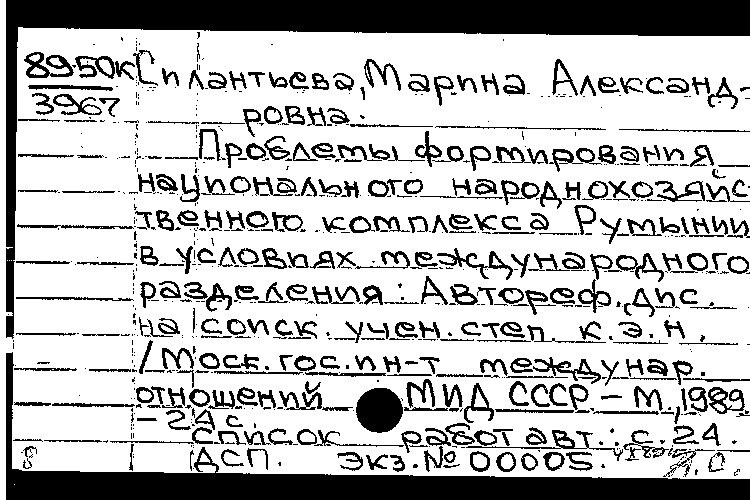 8950к Силантьева, Марина Александ-
3967 ровна.
Проблемы формирования
национального народнохозяйс
твенного комплекса Румынии
в условиях международного
разделения: Автореф. дис.
на соиск. учен. степ. к.э.н.
/Моск. гос. ин-т междунар.
отношений МИД СССР – М., 1989
– 24 с.
Список работ авт.: с. 24.
8 ДСП. Экз. № 00005.